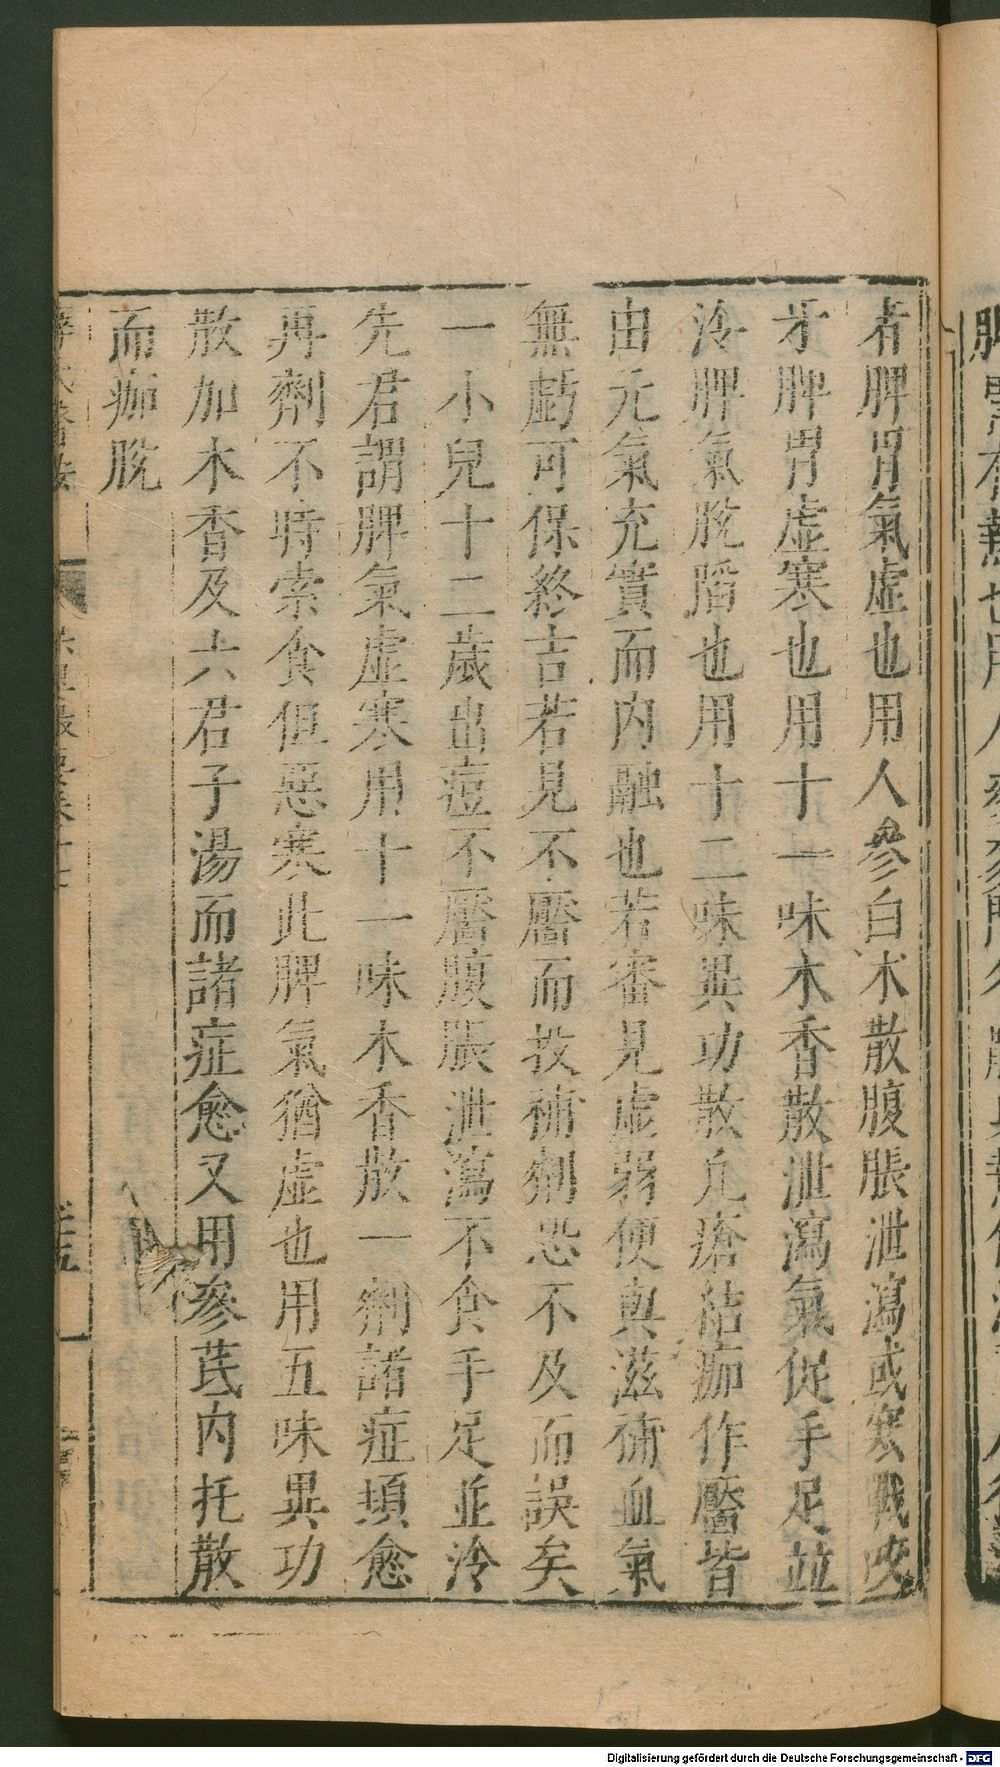 者脾胃氣虛也用人參白朮散腹脹泄瀉或寒戰咬
牙脾胃虛寒也用十一味木香散泄瀉氣促手足並
冷脾氣脫陷也用十二味異功散凡瘡結痂作靨皆
由元氣充實而內融也若審見虛弱便與滋補血氣
無虧可保終吉若見不靨而投補劑恐不及而誤矣
一小兒十二歲出痘不靨腹脹泄瀉不食手足並冷
先君謂脾氣虛寒用十一味木香散一劑諸症頓愈
再劑不時索食但惡寒此脾氣猶虛也用五味異功
散加木香及六君子湯而諸症愈又用參芪內托散
而痂脫
Digitalisierung gefördert durch die Deutsche Forschungsgemeinschaft - DFG